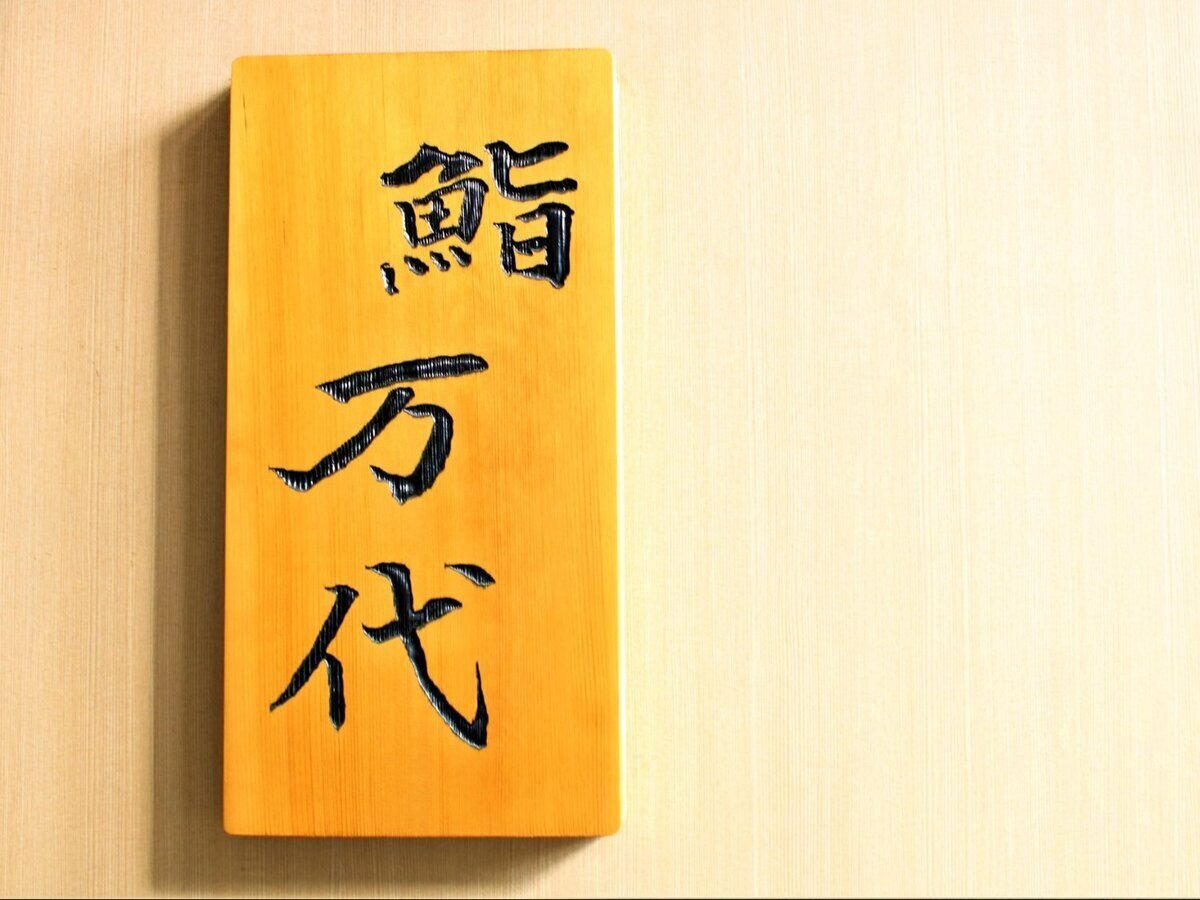 鮨万代